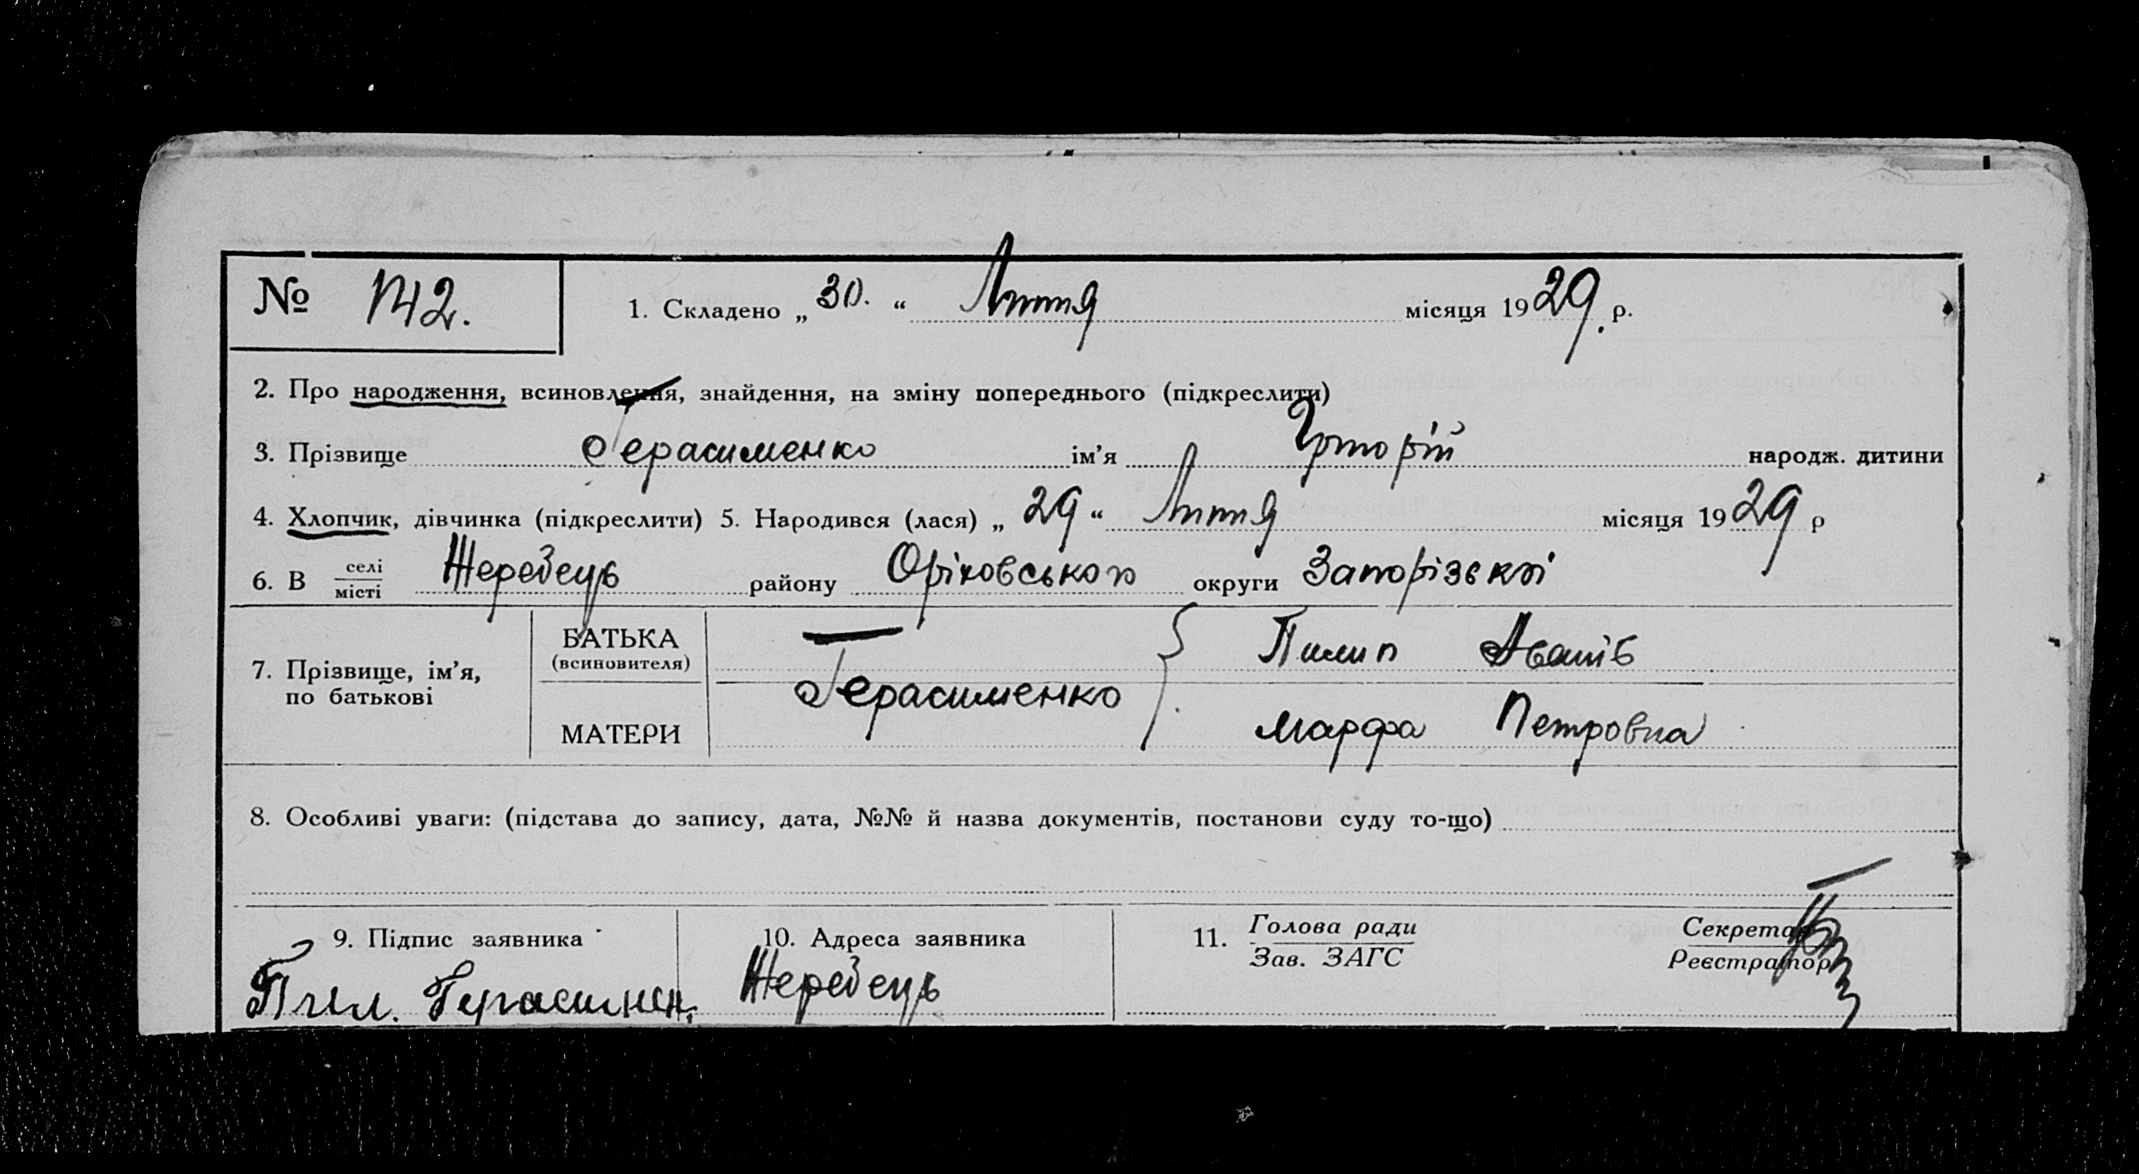 № 142. 1. Складено „ 30. “ Липня місяця 1929. р.
2. Про народження, всиновлення, знайдення, на зміну попереднього (підкреслити)
3. Прізвище Герасименко ім’я Григорій народж. дитини
4. Хлопчик, дівчинка (підкреслити) 5. Народився (лася) „ 29 “ Липня місяця 1929 р
6. В селі/місті Жеребець району Оріховського округи Запорізької
7. Прізвище, ім’я, по батькові
БАТЬКА (всиновителя) Пилип Іванів
Герасименко
МАТЕРИ Марфа Петровна
8. Особливі уваги: (підстава до запису, дата, №№ й назва документів, постанови суду то-що)
9. Підпис заявника 10. Адреса заявника 11. Голова ради Секретар
Зав. ЗАГС Реєстратор
Пил. Герасимен. Жеребець